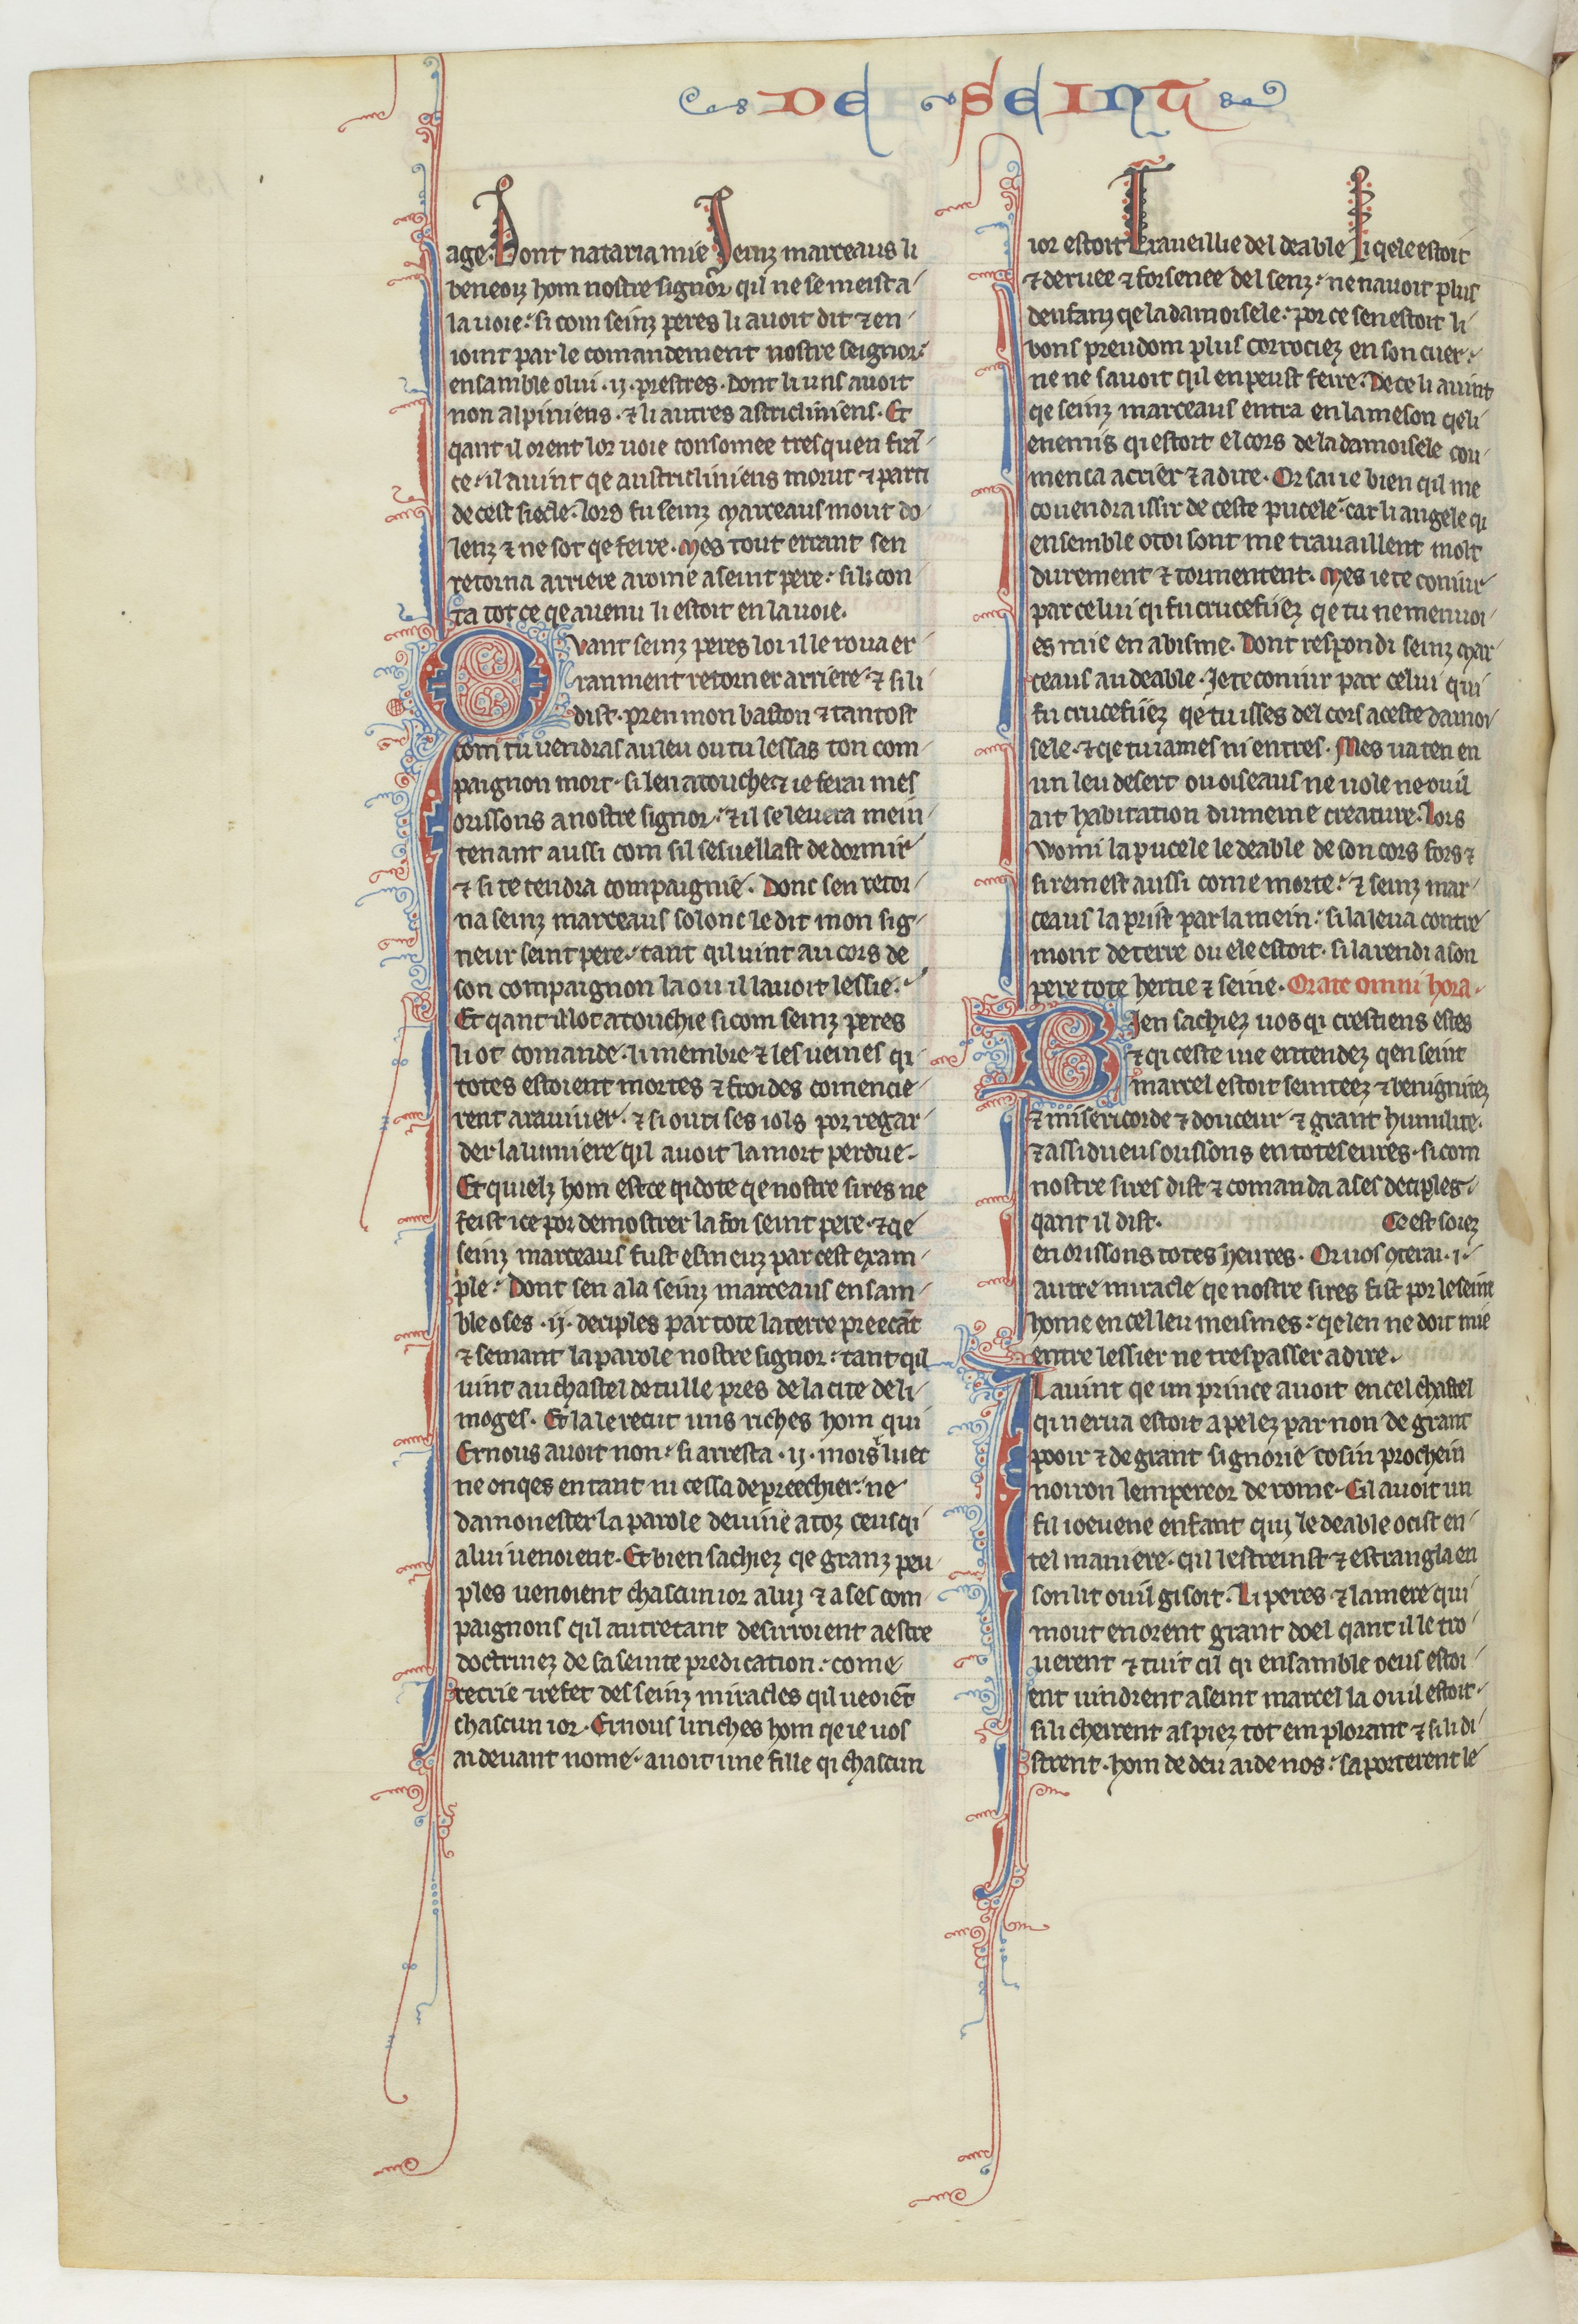 DE SEINT
age. Dont natarja mie Seinz marceaus li
beneoiz hom nostre signor qil ne se meist a
la uoie. si com seinz peres li auoit dit ⁊ en
ioint par le comandement nostre seignor.
ensamble o lui .ij. prestres. dont li uns auoit
non alpiniens. ⁊ li autres astricliniens. Et
qant il orent lor uoie consomee tresqu en fran
ce. il auint qe austricliniens morut ⁊ parti
de cest siecle. lors fu seinz marceaus mout do
lenz ⁊ ne sot qe feire. Mes tout errant sen
retorna arriere a rome a seint pere. si li con
ta tot ce qe auenu li estoit en la uoie.
Quant seinz peres loi il le roua er
ranment retorner arriere. ⁊ si li
dist. pren mon baston ⁊ tantost
com tu uendras au leu ou tu lessas ton com
paignon mort. si len atouche ⁊ ie ferai mes
orissons a nostre signor. ⁊ il se leuera mein
tenant aussi com sil sesuellast de dormir
⁊ si te tendra compaignie. Donc sen retor
na seinz marceaus solonc le dit mon sig
neur seint pere. tant qil uint au cors de
son compaignon la ou il lauoit lessie.
Et qant il lot atouchie si com seinz peres
li ot comande. li membre ⁊ les ueines qi
totes estoient mortes ⁊ froides comencie
rent a rauiuer. ⁊ si ouri ses iols por regar
der la lumiere qil auoit la mort perdue.
Et quielz hom est ce qi dote qe nostre sires ne
feist ice por demostrer la foi seint pere. ⁊ qe
seinz marceaus fust esmeuz par cest exam
ple. Dont sen ala seinz marceaus ensam
ble o ses .ij. deciples par tote la terre preecāt
⁊ semant la parole nostre signor. tant qil
uint au chastel de tulle pres de la cite de li
moges. Et la le recut uns riches hom qui
Ernous auoit non. si arresta .ij. mois luec
ne onqes en tant ni cessa de preechier. ne
damonester la parole deuine a toz ceus qi
a lui uenoient. Et bien sachiez qe granz peu
ples uenoient chascun ior a lui ⁊ a ses com
paignons qil autretant desirroient a estre
doctrinez de sa seinte predication. come
recrie ⁊ refet des seinz miracles qil ueoiēt
chascun ior. Ernous li riches hom qe ie uos
ai deuant nome. auoit une fille qi chascun
ior estoit Traueillie del deable Si qele estoit
⁊ deruee ⁊ forsenee del senz. ne nauoit plus
denfanz qe la damoisele. por ce sen estoit li
bons preudom plus corrociez en son cuer.
ne ne sauoit qil en peust feire. De ce li auint
qe seinz marceaus entra en la meson qe li
enemis qi estoit el cors de la damoisele cou
menca a crier ⁊ a dire. Or sai ie bien qil me
couendra issir de ceste pucele. car li angele qi
ensemble o toi sont me trauaillent molt
durement ⁊ tormentent. Mes ie te coniur
par celui qi fu crucefiiez qe tu ne menuoi
es mie en abisme. Dont respondi seinz mar
ceaus au deable. Je te coniur par celui qui
fu crucefiiez qe tu isses del cors a ceste damoi
sele. ⁊ qe tu iames ni entres. Mes ua ten en
un leu desert ou oiseaus ne uole ne ou il
ait habitation dumeine creature. Lors
womi la pucele le deable de son cors fors ⁊
si remest aussi come morte. ⁊ seinz mar
ceaus la prist par la mein. si la leua contre
mont de terre ou ele estoit. si la rendi a son
pere tote heitie ⁊ seine. Orate omni hora.
Bien sachiez uos qi crestiens estes
⁊ qi ceste uie entendez qen seint
marcel estoit seinteez ⁊ benignitez
⁊ misericorde ⁊ douceur ⁊ grant humilite.
⁊ assidueus orissons en totes eures. si com
nostre sires dist ⁊ comanda a ses deciples.
qant il dist. Ce est soiez
en orissons totes heures. Or uos 9terai .i.
autre miracle qe nostre sires fist por le seint
home en cel leu meismes. qe len ne doit mie
entrelessier ne trespasser a dire.
Il auint qe un prince auoit en cel chastel
qi nerua estoit apelez par non de grant
pooir ⁊ de grant signorie cosin prochein
noiron lempereor de rome. Cil auoit un
fil ioeuene enfant qui le deable ocist en
tel maniere. qil lestreinst ⁊ estrangla en
son lit ou il gisoit. Li peres ⁊ la mere qui
mout en orent grant doel qant il le tro
uerent ⁊ tuit cil qi ensamble o eus estoi
ent uindrent a seint marcel la ou il estoit.
si li cheirent as piez tot em plorant ⁊ si li di
strent. hom de deu aide nos. sa porterent le